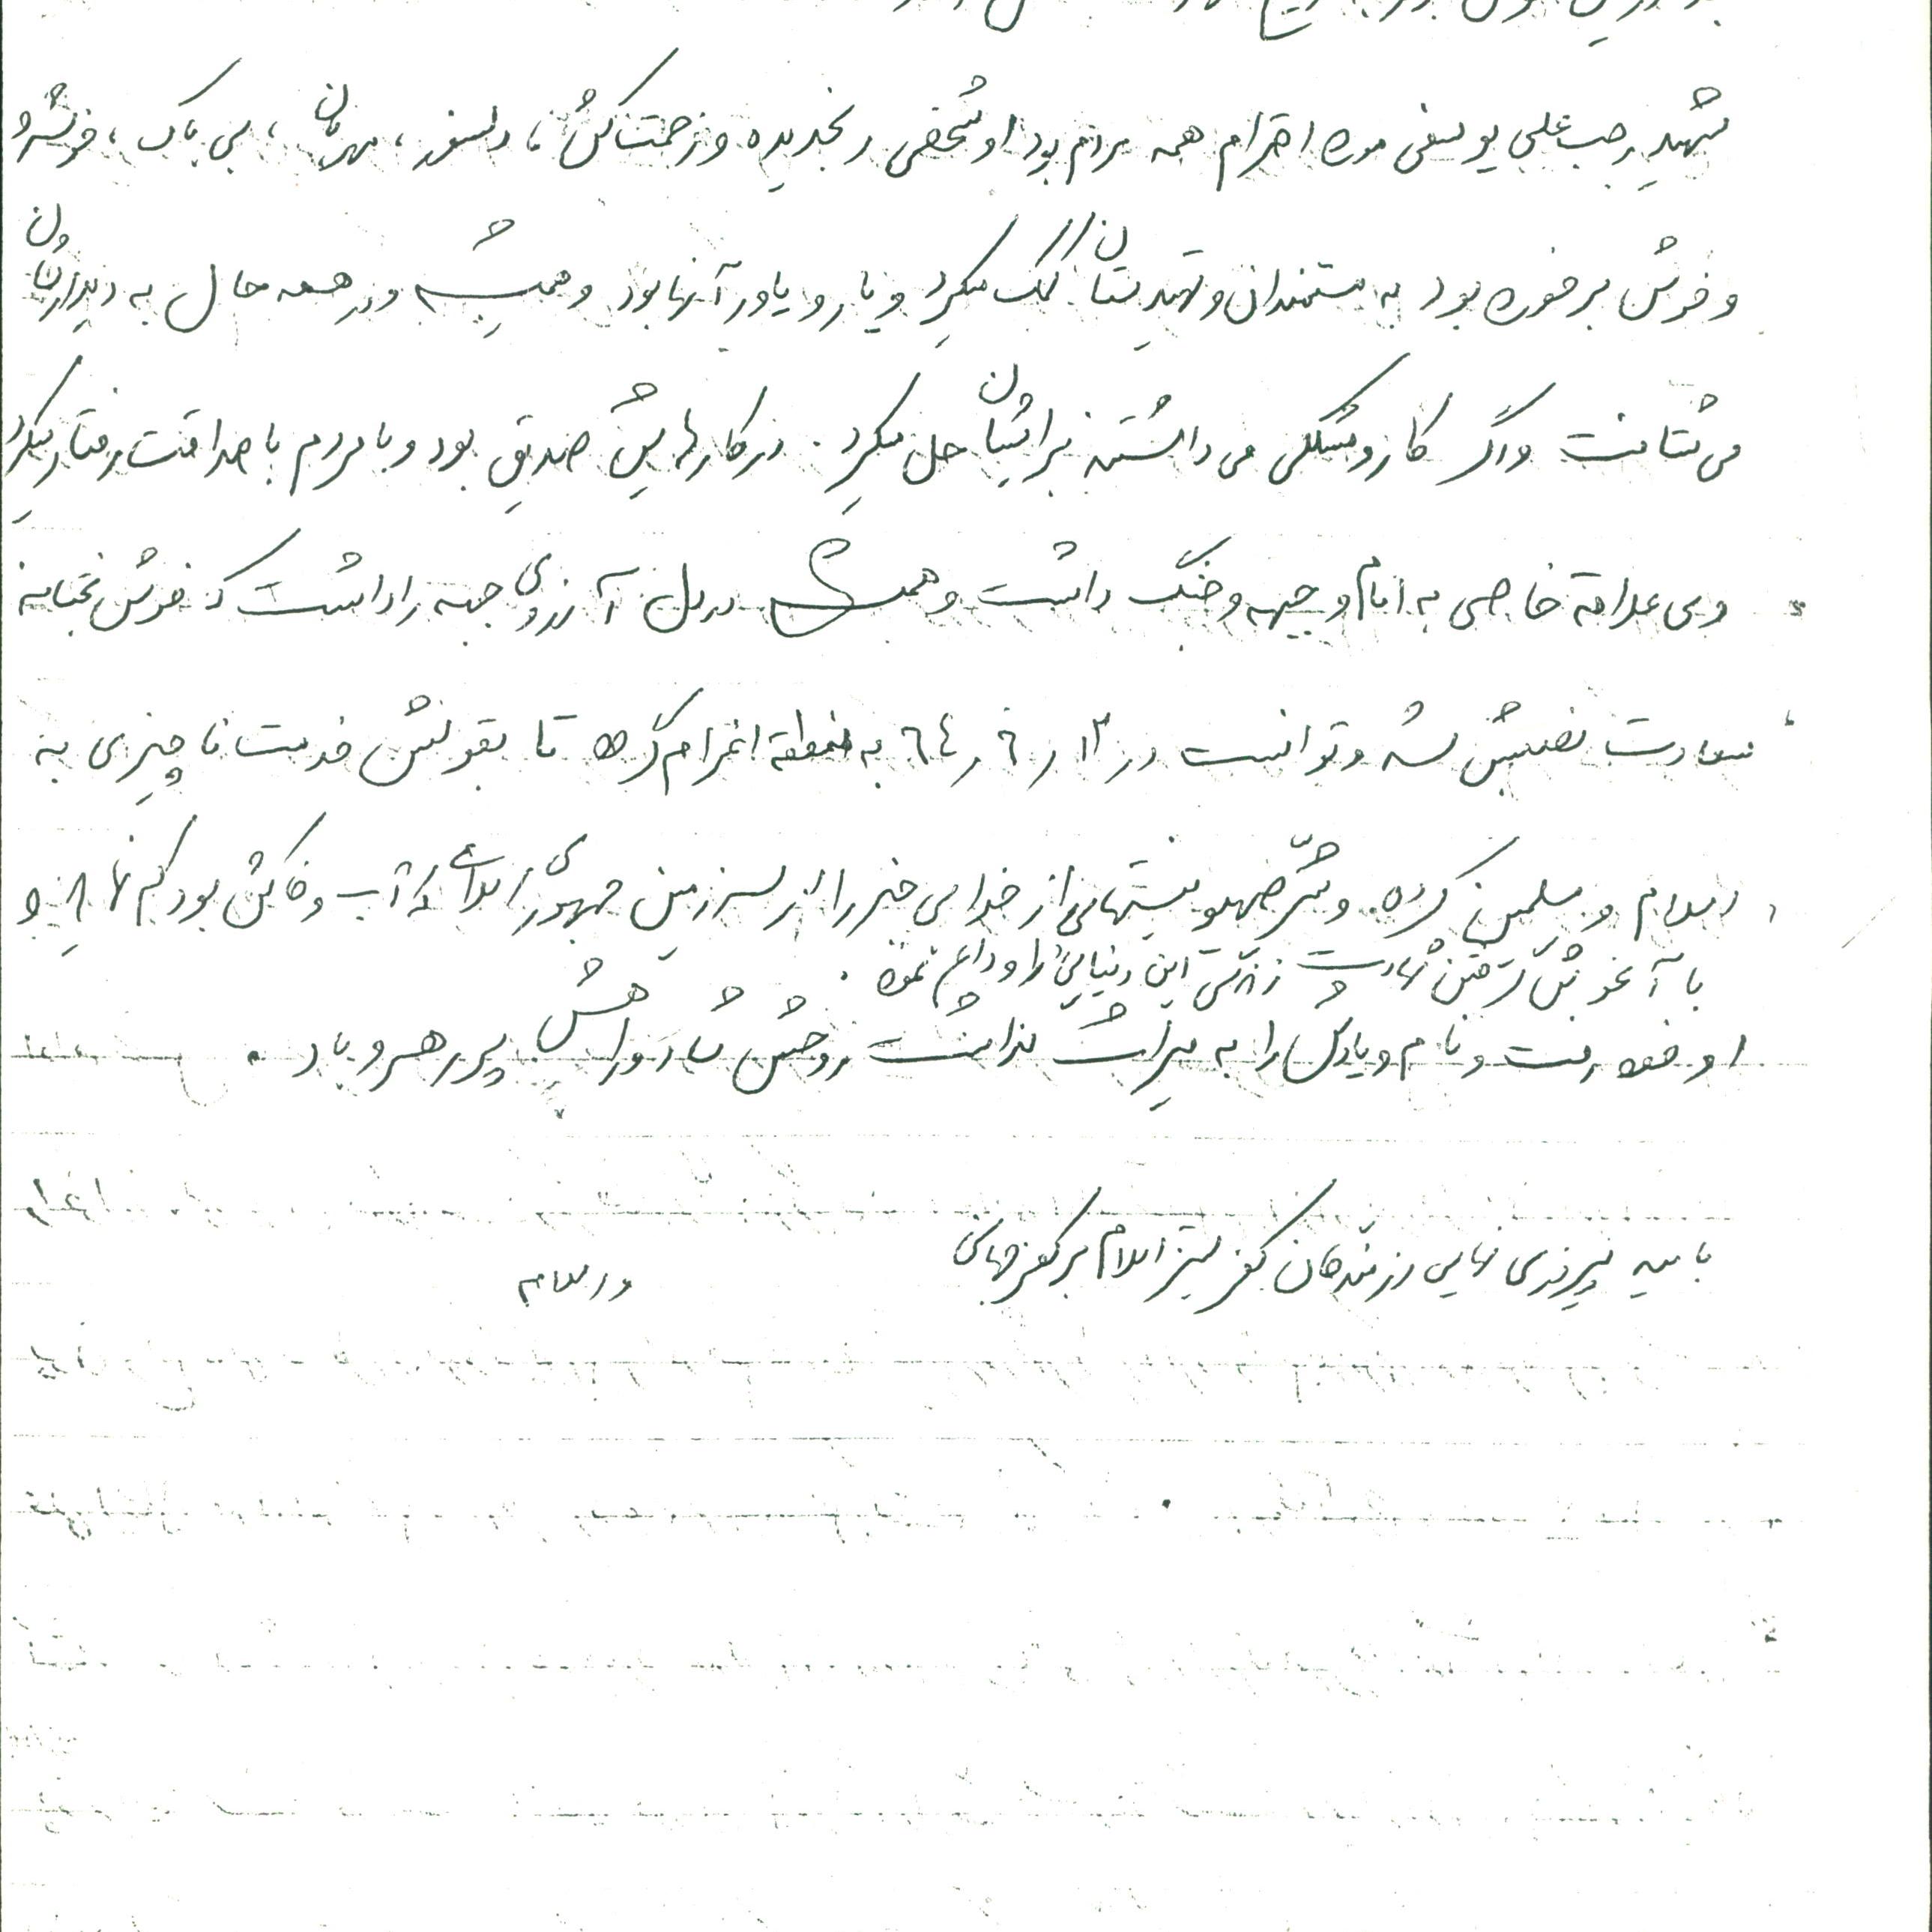 شهید رجب علی یوسفی مورد احترام همه مردم بود او شخصی رنجدیده و زحمت کش ، دلسوز ، مهربان ، بی باک ، خوشرو
و خوش برخورد بود به مستمندان و تهیدستان کمک میکرد و یار و یاور آنها بود و همیشه در همه حال به دیدارشان
می شتافت و اگر کار و مشکلی می داشتند برایشان حل میکرد . در کارهایش صدیق بود و با مردم با صداقت رفتار میکرد
وی علاقه خاصی به امام و جبهه و جنگ داشت و همیشه در دل آرزوی جبهه را داشت که خوش بختانه
سعادت نصیبش شد و توانست در ۱۲ ر ۶ ر ٦٤ به منطقه اعزام گردد تا بقولش خدمت ناچیزی به
اسلام و مسلمین کرده . و شر صهیونیستهای از خدا بی خبر را از سرزمین جمهوری اسلامی که آب و خاکش بود کم نماید و
با آغوش گرفتن شهادت زندگی این دنیایی را وداع نموده .
او خود رفت و نام و یادش را به میراث گذاشت روحش شاد و راهش پر رهرو باد .
بامید پیروزی نهایی رزمندگان کفر ستیز اسلام بر کفر جهانی
والسلام